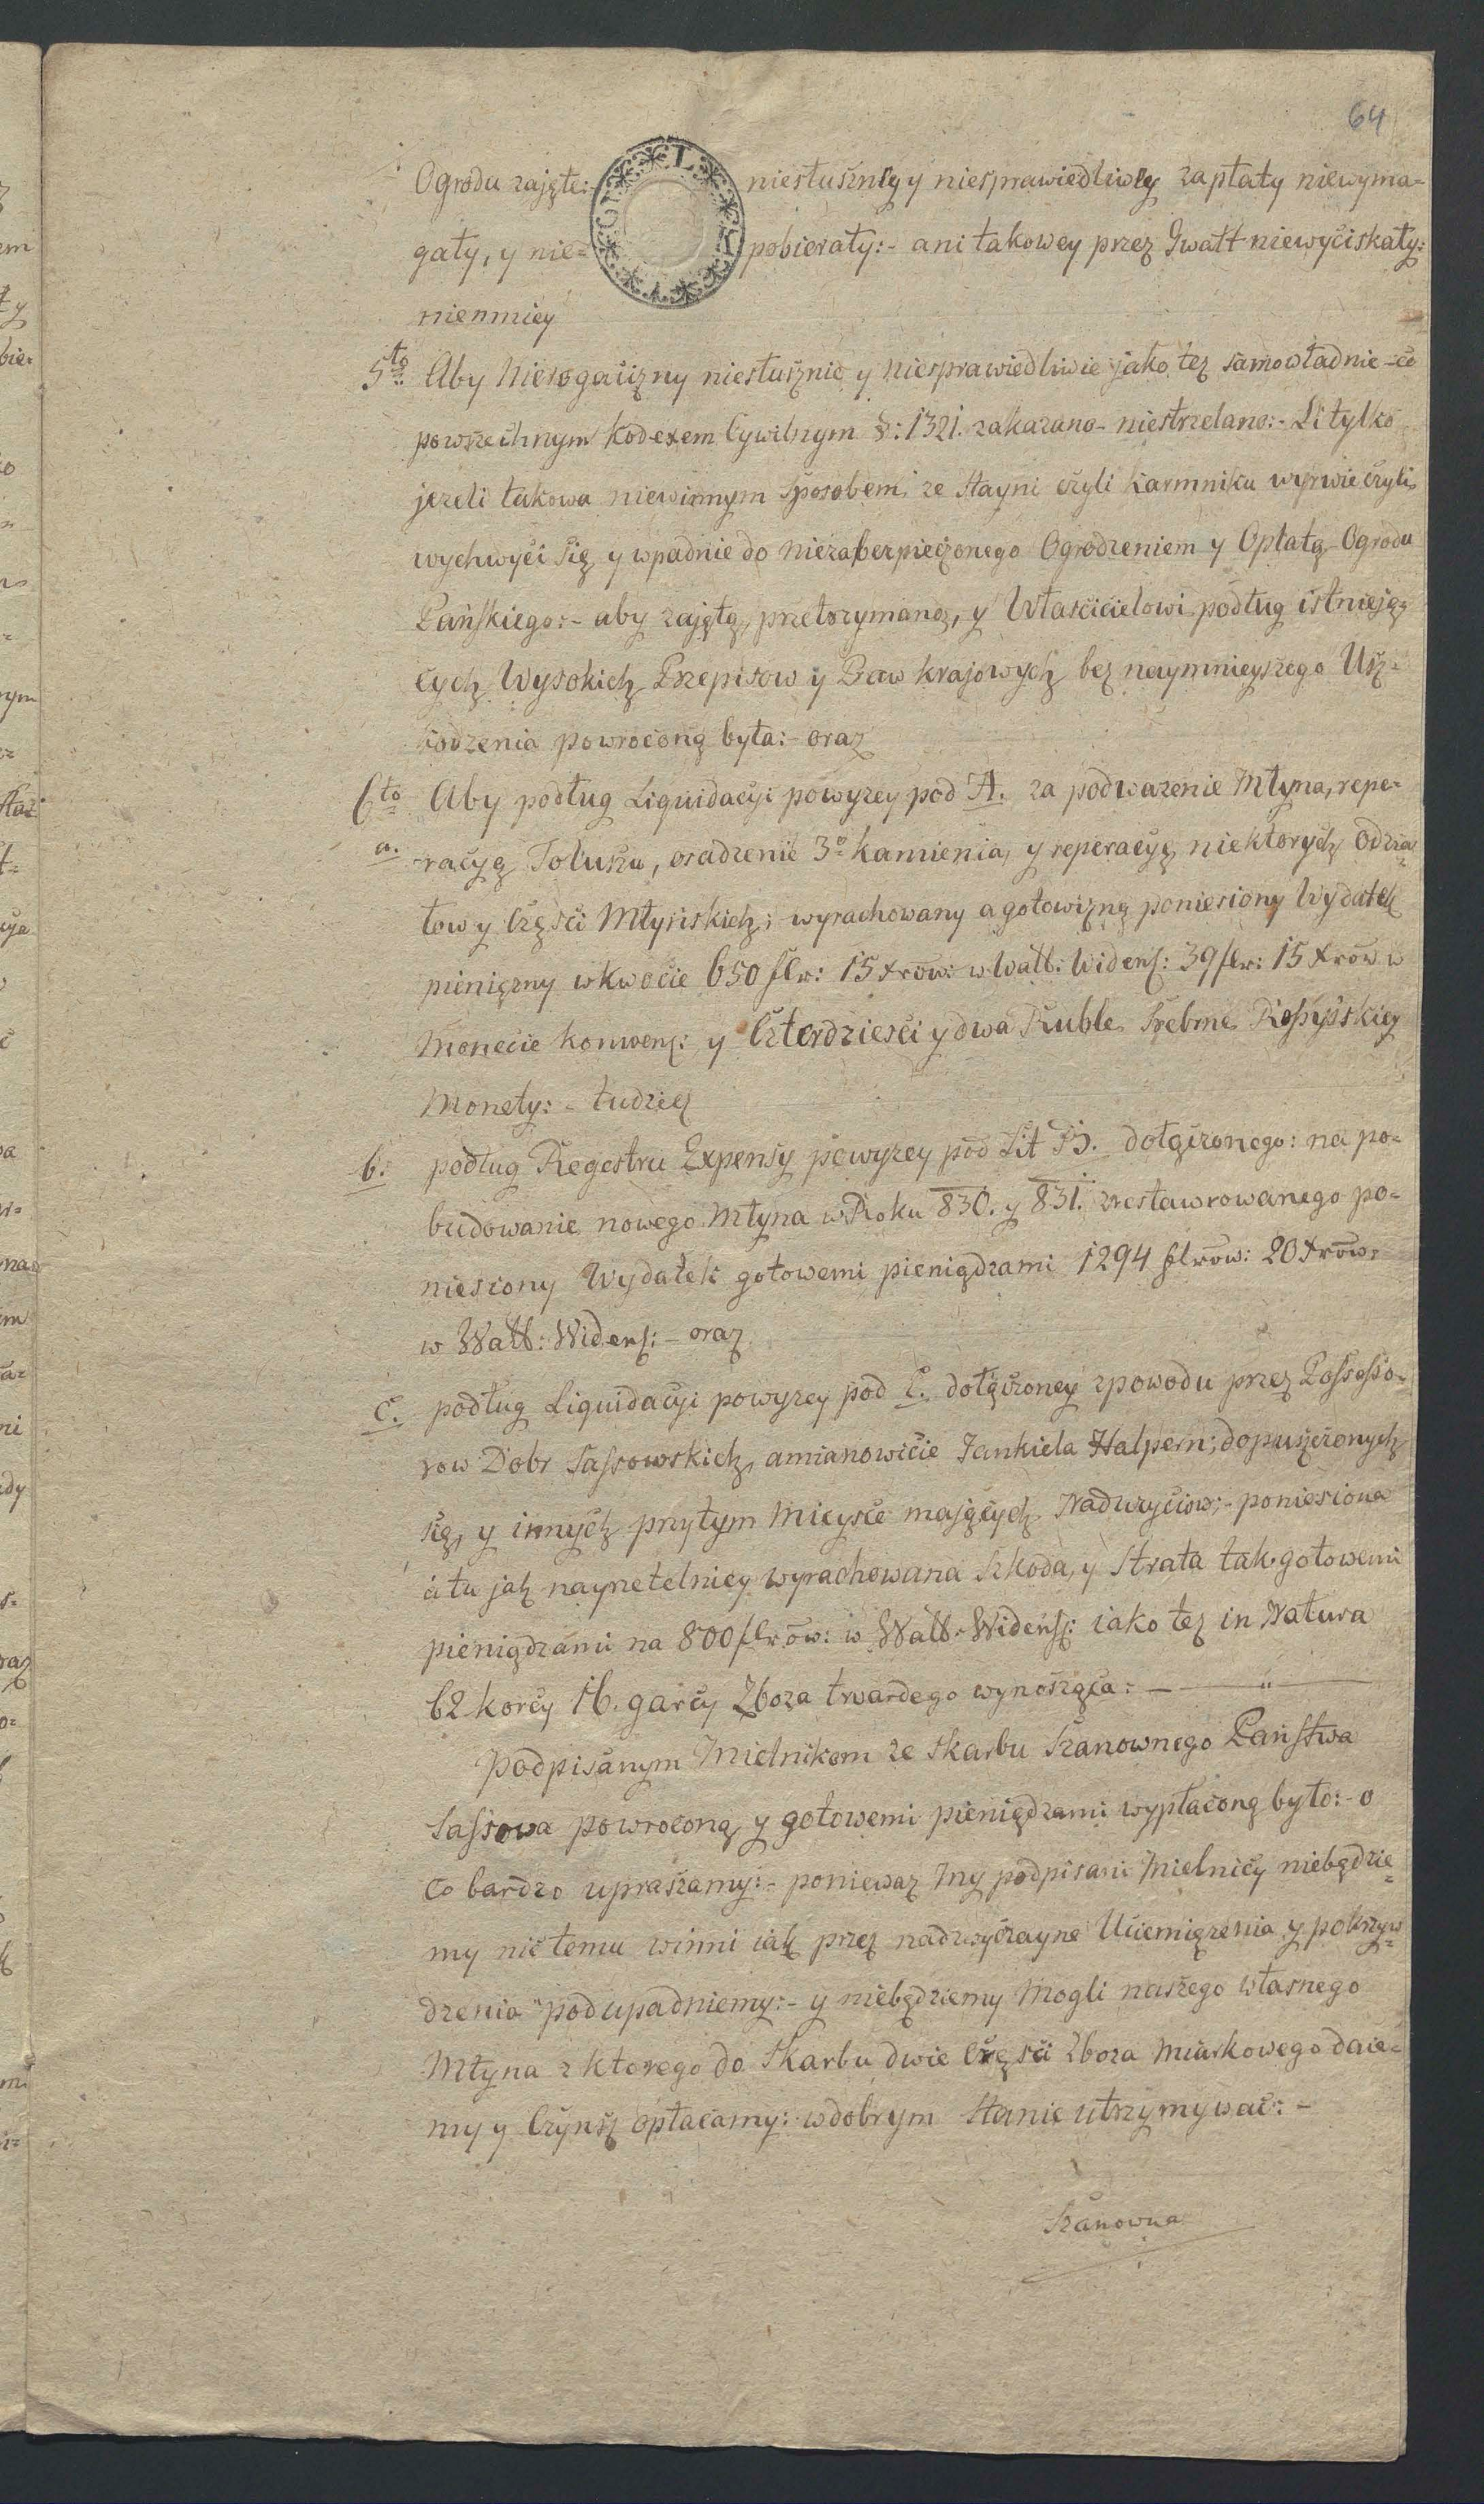 64
Ogrodu zajęte:- niesłuszney y niesprawiedliwey zapłaty niewyma-
gały, y nie= pobierały:- ani takowey przez Gwałt niewyciskały:
niemniey
5to Aby Nierogacizny niesłusznie y niesprawiedliwie jako tez samowładnie - co
powszechnym Kodexem Cywilnym §: 1321. zakazano - niestrzelano:- Li tylko
jezeli takowa niewinnym sposobem ze Stayni czyli Karmniku wyrwie czyli
wychwyci się y wpadnie do niezabezpieczonego Ogrodzeniem y Opłatą Ogrodu
Pańskiego:- aby zajętą, przetrzymaną, y Właścicielowi podług istnieją
cych Wysokich Przepisow y Praw krajowych bez naymnieyszego Usz-
kodzenia powroconą była:- oraz
6to Aby podług Liquidacyi powyzey pod A. za podwazenie Młyna, repe-
a. racyą Toluszu, osadzenie 3o Kamienia, y reperacyę niektorych Odzia=
łow y Części Młyńskich; wyrachowany a gotowizną poniesiony Wydatek
pieniężny w kwocie 650 flr: 15 Xrow: w Walt: Wideńs: 39 flr: 15 Xrow w
Monecie konwens: y Czterdzieści y dwa Ruble Srebrne Rossyiskiey
Monety:- tudziez
b: podług Regestru Expensy powyzey pod Lit B. dołączonego: na po-
budowanie nowego Młyna w Roku 830. y 831. zrestawrowanego po-
niesiony Wydatek gotowemi pieniądzami 1294 flrow: 20 Xrow:
w Walt: Wideńs:- oraz
c. podług Liquidacyi powyzey pod C. dołączoney z powodu przez Possesso-
row Dobr Sassowskich, a mianowicie Jankiela Halpern; dopuszczonych
się, y innych przytym Mieysce mających Naduzyciow;- poniesiona
a tu jak nayrzetelniey wyrachowana Szkoda, y Strata tak gotowemi
pieniądzami na 800 flrow: w Walt. Wideńs: iako tez in Natura
62 korcy 16. garcy Zboza twardego wynosząca: — " —
Podpisanym Mielnikom ze Skarbu Szanownego Państwa
Sassowa powroconą, y gotowemi pieniądzami wypłaconą było:- o
co bardzo upraszamy:- poniewaz My podpisani Mielnicy niebędzie=
my nic temu winni iak przez nadzwyczayne Uciemięzenia y pokrzyw=
dzenia "podupadniemy:- y niebędziemy mogli naszego własnego
Młyna z ktorego do Skarbu dwie Części Zboza Miarkowego daie-
my y Czynsz opłacamy: w dobrym Stanie utrzymywać:-
Szanowna